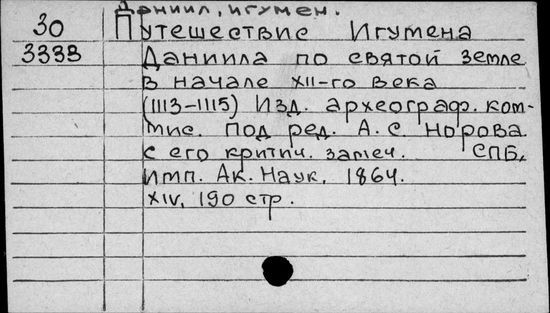 Даниил, игумен.
30 Путешествие Игумена
3333 Даниила по святой земле
в начале XII-го века
(1113-1115) Изд. археограф. ком-
мис. Под ред. А.С Норова
с его критич. замеч. СПБ,
имп. Ак. Наук, 1864.
XIV, 190 стр.